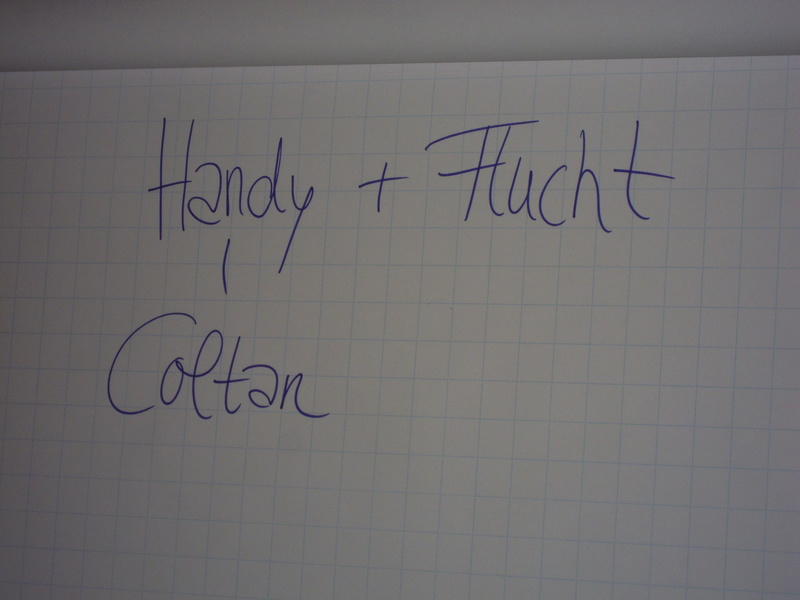 Handy + Flucht
Coltan